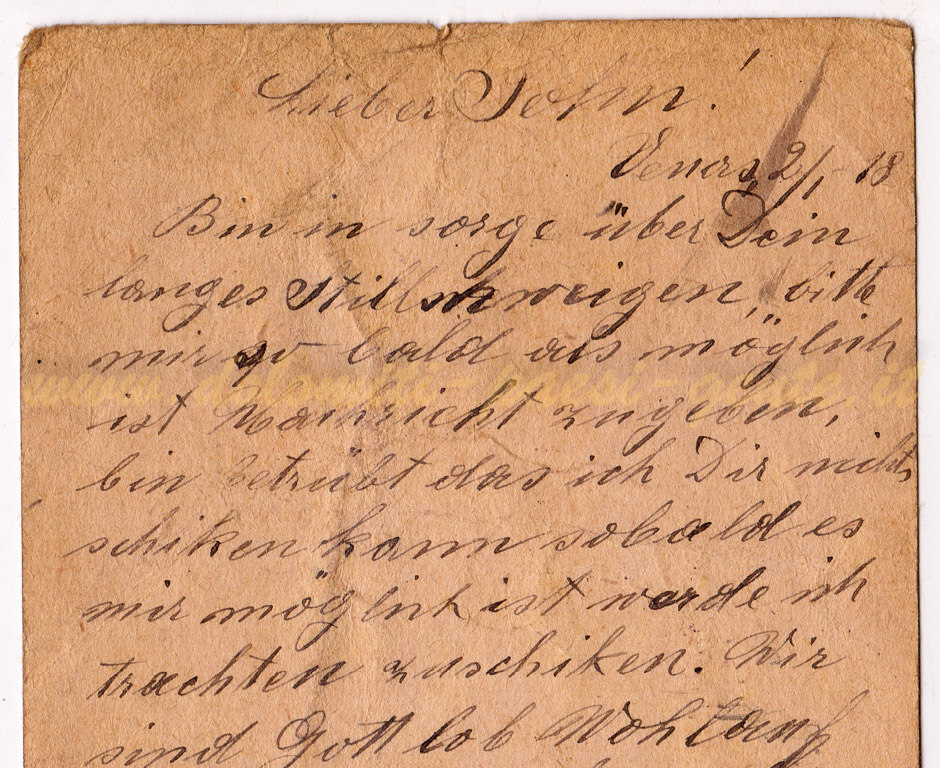 Lieber Sohn!
Venas 2/1 - 18
Bin in sorge über Dein
langes Stillschweigen, bitte
mir so bald als möglich
ist Nachricht zugeben,
bin betrübt das ich Dir nichts
schiken kann sobald es
mir möglich ist werde ich
trachten zuschiken. Wir
sind Gott lob Wohlauf
www.dolomiti-paesi-gente.it